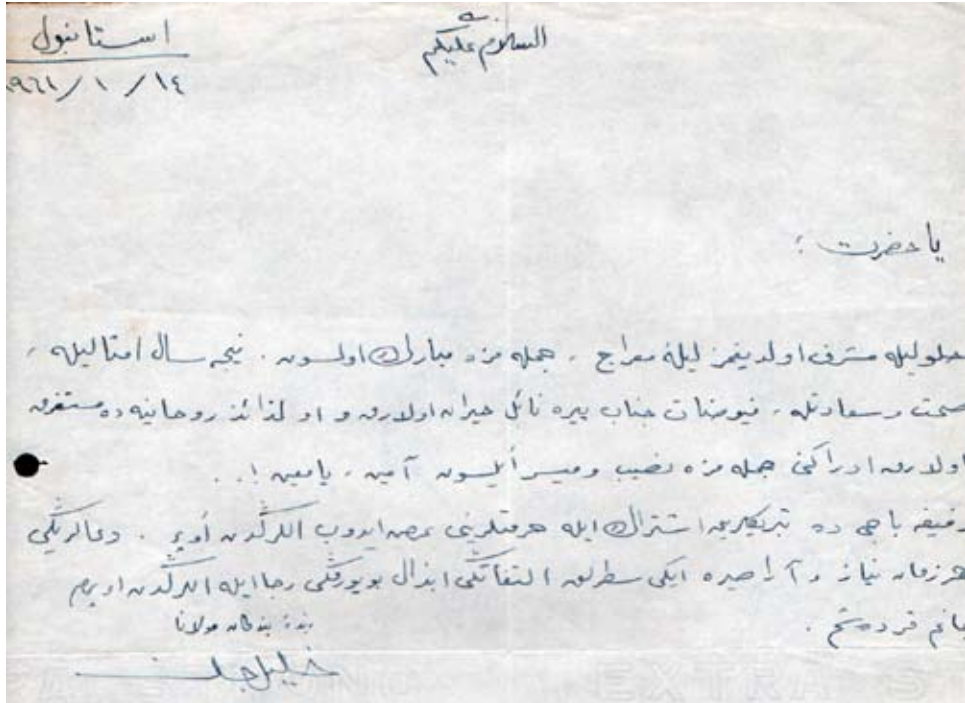 استانبول
السلام عليكم
١٩٦١/١/١٤
يا حضرت ؛
حلوليله مشرف اولديغمز ليلهٔ معراج ، جمله مزه مبارك اولسون . نيجه سال امثاليله ،
صحت و سعادتله ، فيوضات جناب پيره نائل حيران اولارق و او لذائذ روحانيه ده مستغرق
اولارق ادراكنى جمله مزه نصيب و ميسر ايليسون آمين ، يا معين ! . .
رفيقه باجى ده تبريكلريمه اشتراك ايله حرمتلرينى عرض ايدوب اللرڭدن اوپر . دعالريڭى
هر زمان نياز و آرا صيره ايكى سطرلق التفاتڭى ابذال بويورمڭى رجا ايله اللرڭدن اوپرم
جانم قرده شم .
بندهٔ بندكان مولانا
خليل جان